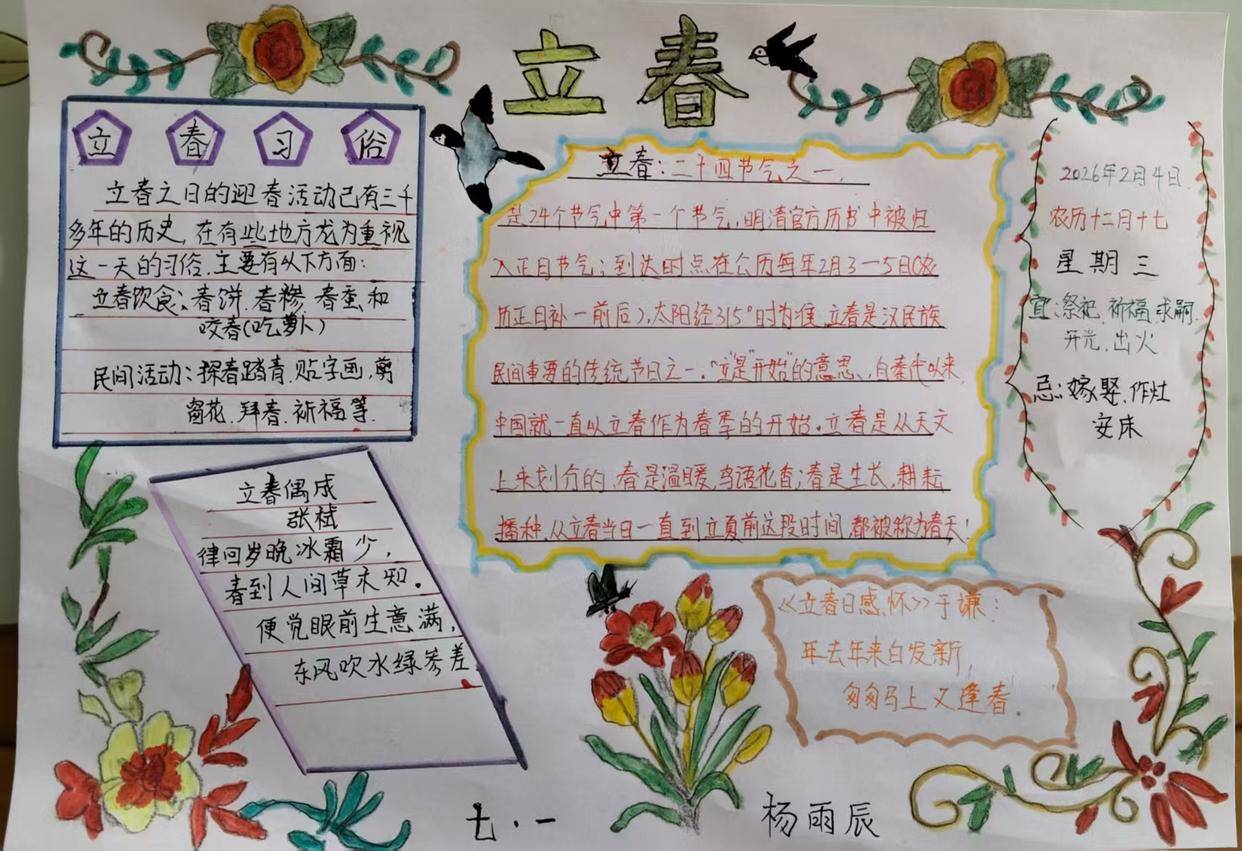 立春
立春习俗
立春之日的迎春活动已有三千
多年的历史,在有些地方尤为重视
这一天的习俗.主要有以下方面:
立春饮食:春饼.春糁.春蚕.和
咬春(吃萝卜)
民间活动:探春踏青.贴字画,剪
窗花.拜春.祈福等.
立春偶成
张栻
律回岁晚冰霜少,
春到人间草木知。
便觉眼前生意满,
东风吹水绿参差.
立春:二十四节气之一.
是24个节气中第一个节气,明清官方历书中被归
入正月节气;到达时点在公历每年2月3—5日(农
历正月初一前后),太阳经315°时为准.立春是汉民族
民间重要的传统节日之一."立是"开始"的意思、,自秦代以来,
中国就一直以立春作为春季的开始。立春是从天文
上来划分的.春是温暖,鸟语花香;春是生长,耕耘
播种.从立春当日一直到立夏前这段时间,都被称为春天!
2026年2月4日.
农历十二月十七
星期三
宜:祭祀.祈福.求嗣.
开光.出火
忌:嫁娶.作灶
安床
《立春日感怀》于谦:
年去年来白发新,
匆匆马上又逢春.
七.一
杨雨辰